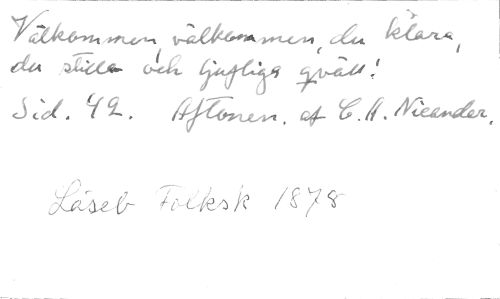 Välkommen, välkommen, du klara,
du stilla och ljufliga qväll!
Sid. 42. Aftonen. af C. A. Nicander.
Läseb Folksk 1878